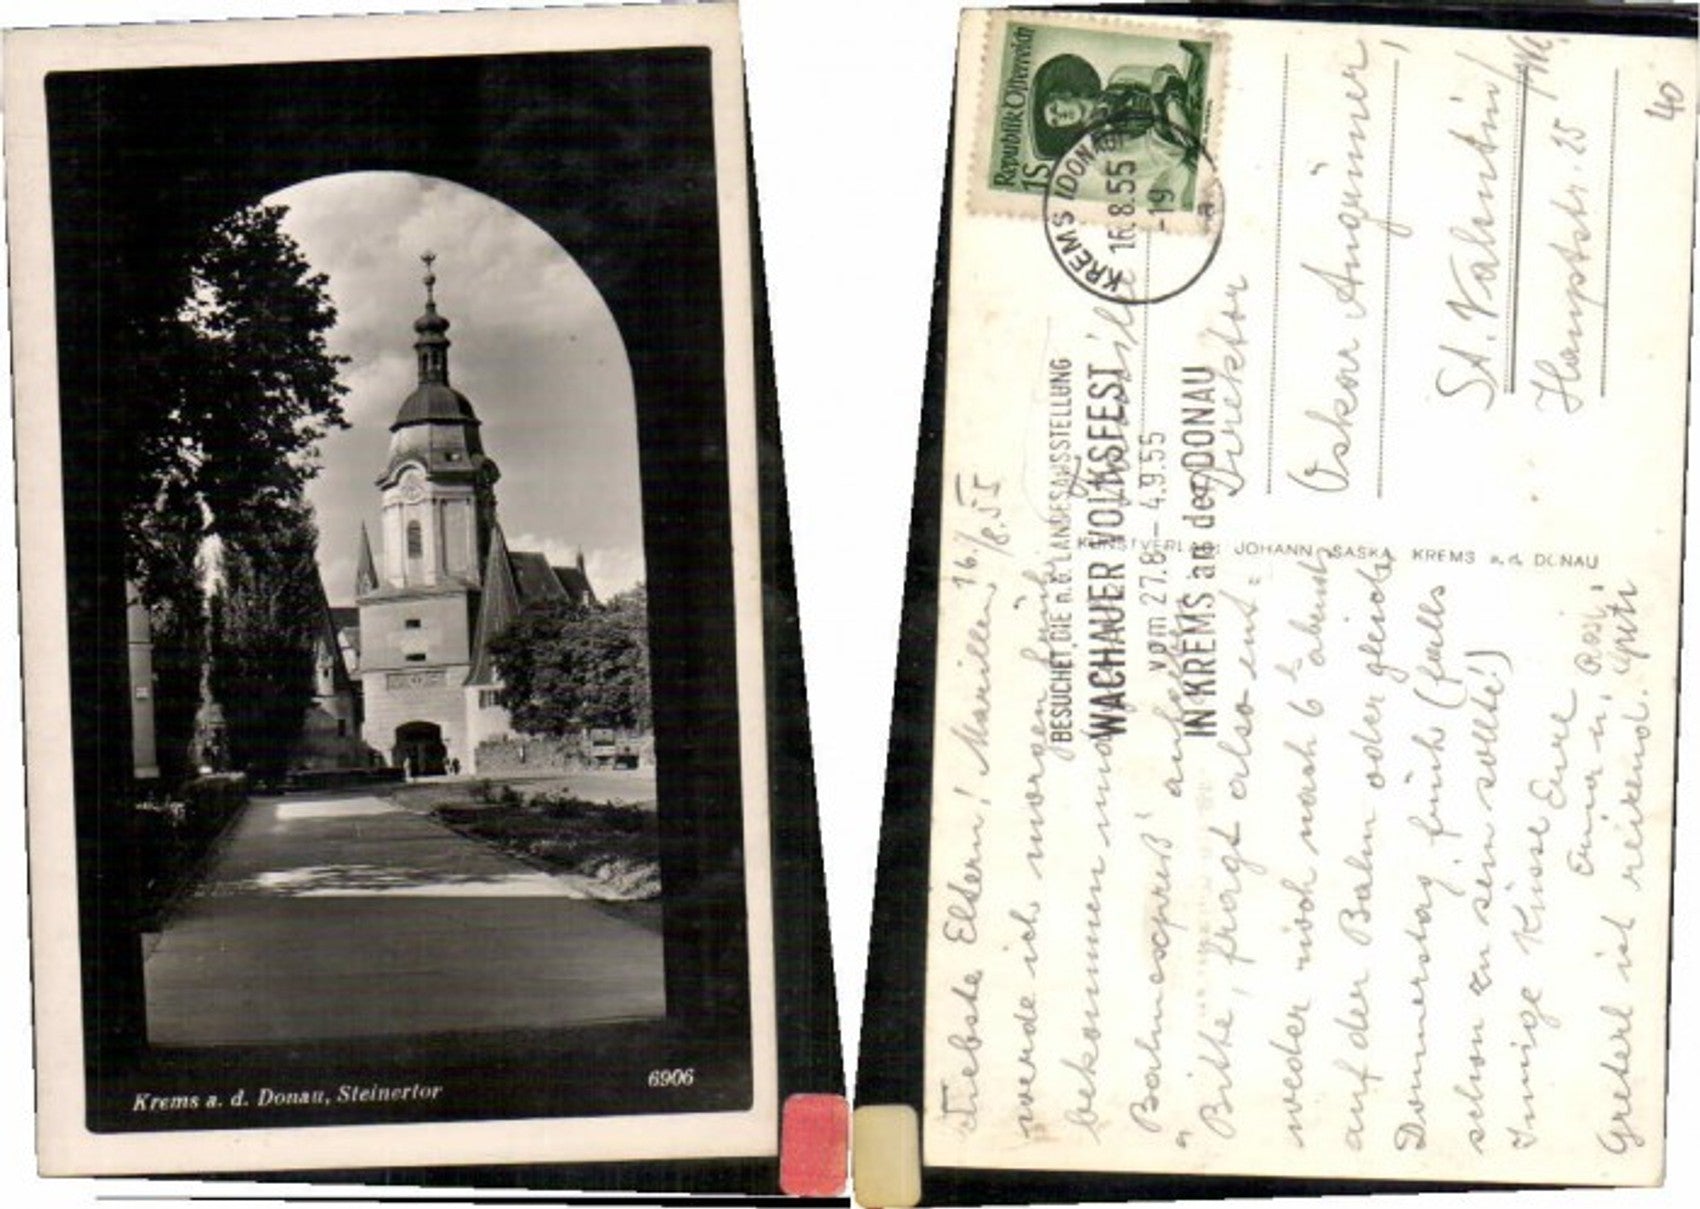 Krems a. d. Donau, Steinertor
6906
Republik Österreich
1S
KREMS (DONAU)
16.8.55
-19
BESUCHET DIE n.ö. LANDESAUSSTELLUNG
WACHAUER VOLKSFEST
vom 27.8.– 4.9.55
IN KREMS an der DONAU
KUNSTVERLAG: JOHANN SASKA KREMS a. d. DONAU
Direktor
Oskar
St. Valentin
Hauptstr. 25
40
Liebste Eltern! Marillen 16./8.55
werde ich morgen
bekommen und
Bahnexpreß
Bitte, fragt also
weder noch nach 6h abends
auf der Bahn oder gleich
Donnerstag früh (falls
schon zu sein sollte!)
Innige Küsse Eure
Erna u. Rosi,
Greterl ist reizend.